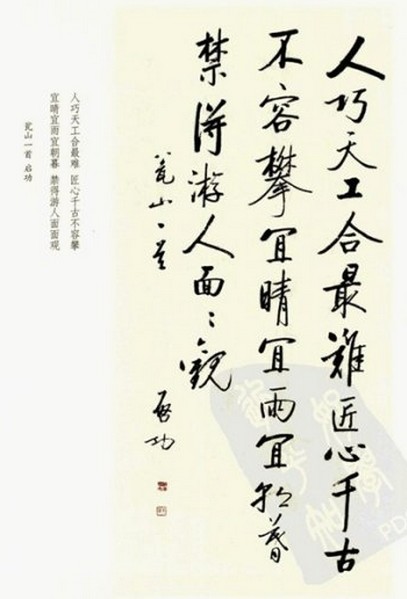 人巧天工合最難匠心千古
不容攀宜晴宜雨宜朝暮
禁得游人面々觀
瓮山一首
啟功
人巧天工合最难 匠心千古不容攀
宜晴宜雨宜朝暮 禁得游人面面观
瓮山一首 启功
PD